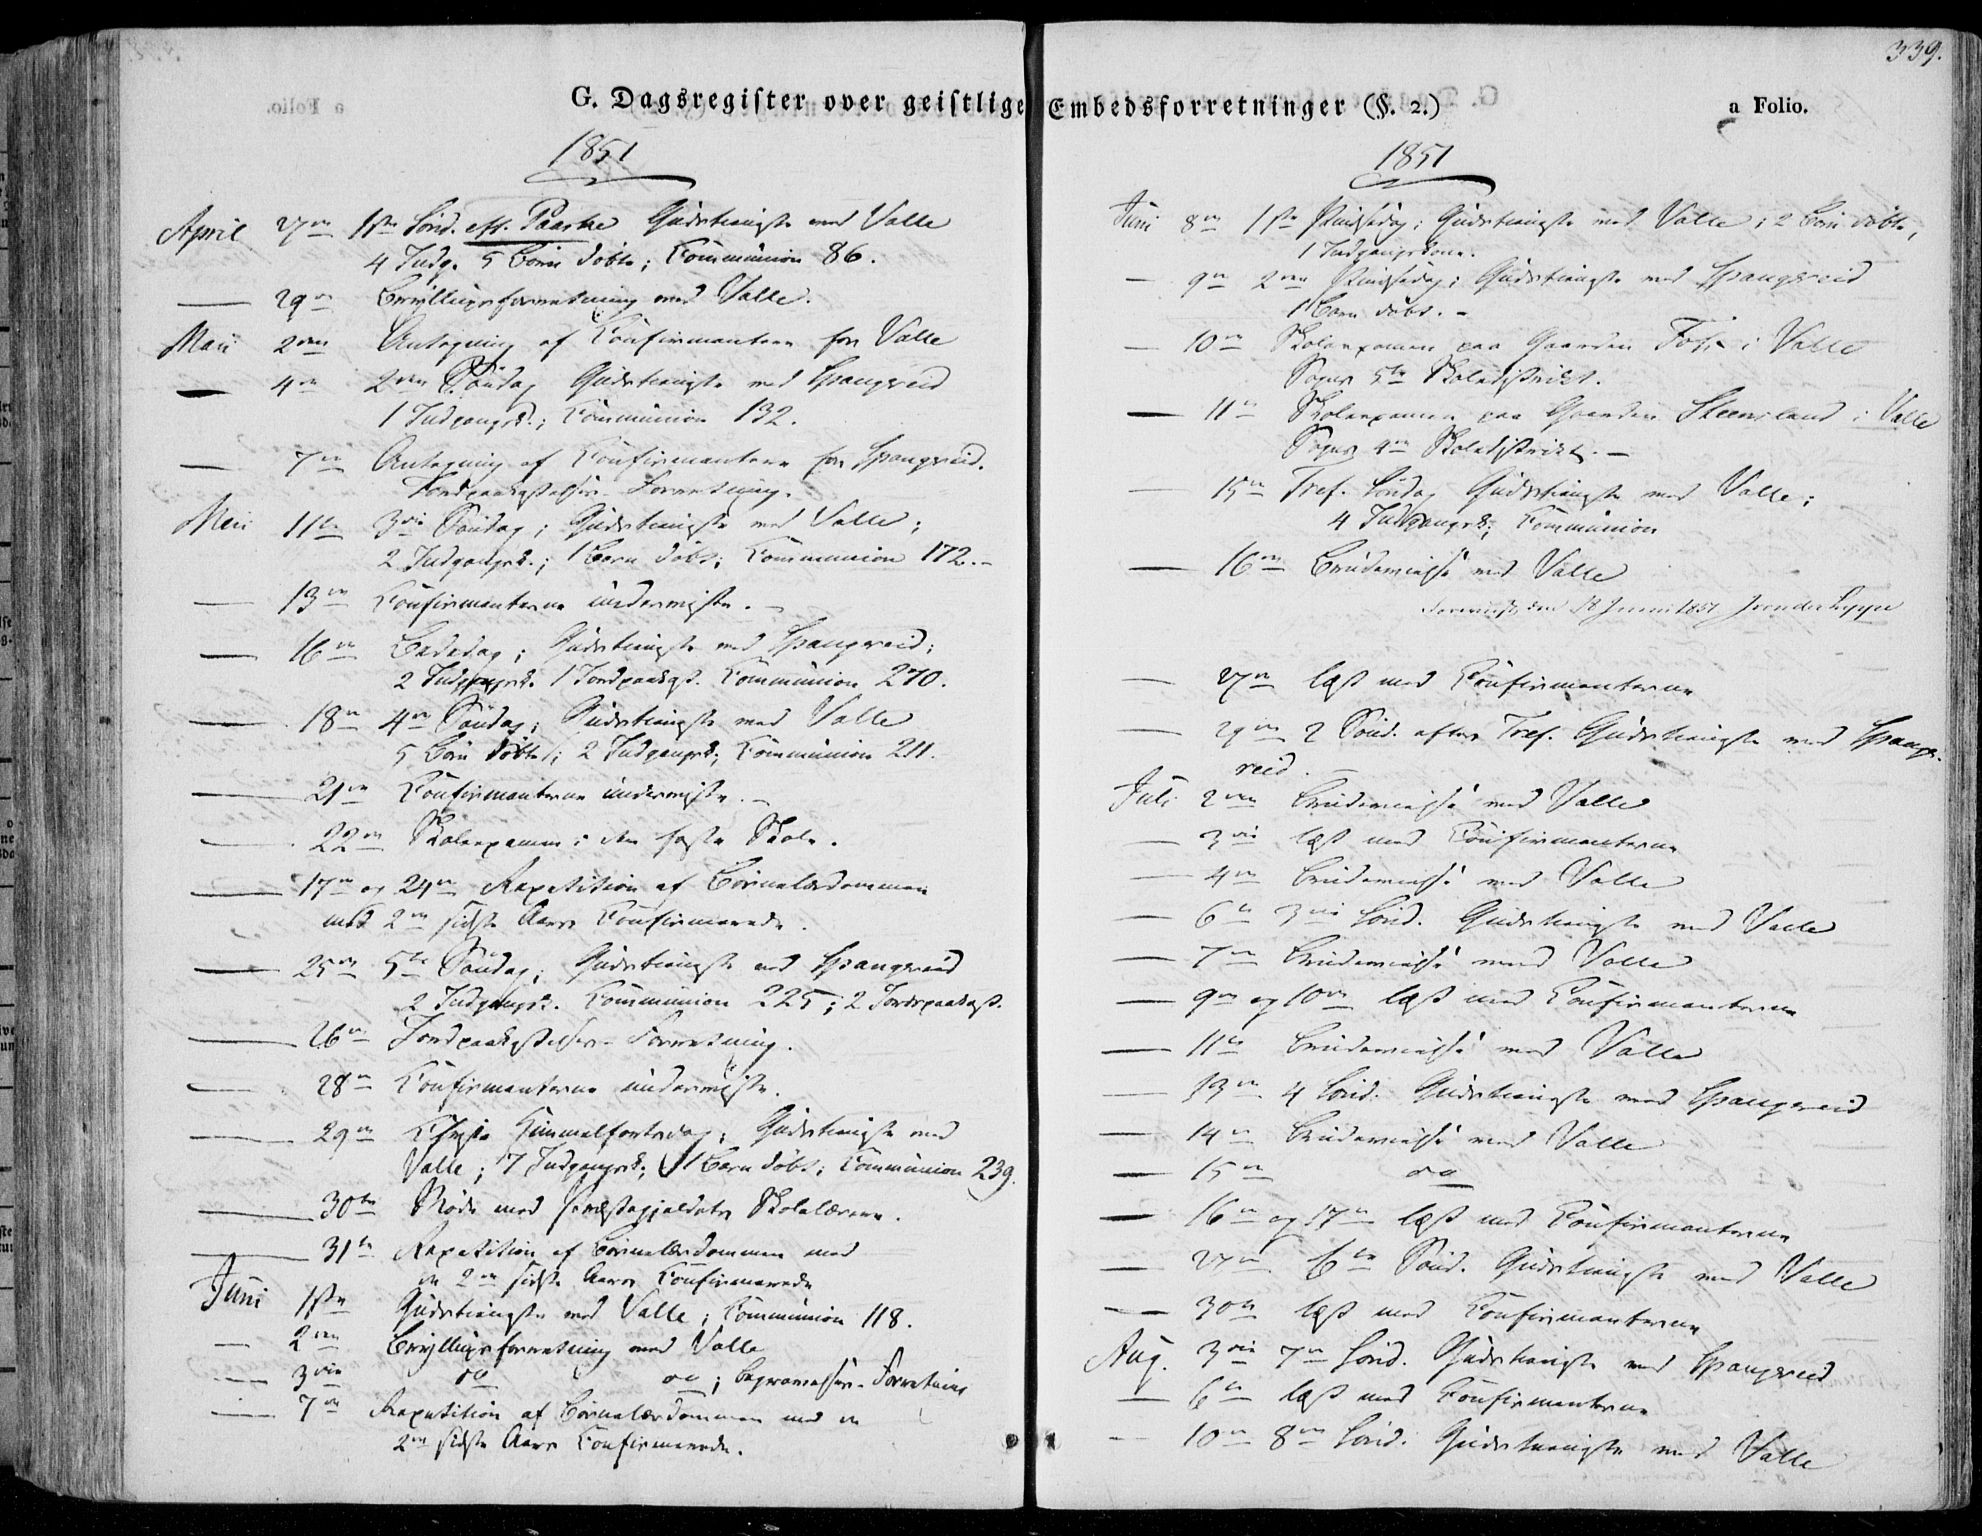 339.
G. Dagsregister over geistlige Embedsforretninger (§. 2.)
a Folio.
1851
April 27de 1ste Sønd. eft. Paaske Gudstieneste ved Valle
4 Indg. 5 Børn døbte; Communion 86.
— 29de Brylluppsforretning ved Valle.
Mai 2den Antagning af Confirmantere for Valle
— 4de 2den Søndag Gudstieneste ved Spangereid
1 Indgangsk.; Communion 132.
— 7de Antagning af Confirmantere for Spangereid.
Jordpaakastelses-Forretning.
Mai 11te 3die Søndag; Gudstieneste ved Valle;
2 Indgangsk.; 1 Barn døbt; Communion 172.–
— 13de Confirmanterne underviiste.–
— 16de Bededag; Gudstieneste ved Spangereid;
2 Indgangsk. 1 Jordpaakast. Communion 270.
— 18de 4de Søndag; Gudstieneste ved Valle
5 Børn døbte; 2 Indgangsk; Communion 211.
— 21de Confirmanterne underviiste.–
— 22de Skoleexamen i den faste Skole.
— 17de og 24de Repetition af Børnelærdommen
med 2de sidste Aars Confirmerede.
— 25de 5te Søndag; Gudstieneste ved Spangereid
2 Indgangsk. Communion 225; 2 Jordspaakast.
— 26de Jordpaakastelses-Forretning.
— 28de Confirmanterne underviiste.
— 29de Christi Himmelfartsdag; Gudstieneste ved
Valle; 7 Indgangsk; 1 Barn døbt; Communion 239.
— 30te Møde med Præstegjeldets Skolelærere.
— 31te Repetition af Børnelærdommen med
de 2de sidste Aars Confirmerede
Juni 1ste Gudstieneste ved Valle; Communion 118.
— 2den Brylluppsforretning ved Valle
— 3die do do; Begravelses-Forretning
— 7de Repetition af Børnelærdommen med de
2de sidste Aars Confirmerede.
1851
Juni 8de 1ste Pintsedag; Gudstieneste ved Valle; 2 Børn døbte,
1 Indgangskone.
— 9de 2den Pintsedag; Gudstieneste ved Spangereid
1 Barn døbt.–
— 10de Skoleexamen paa Gaarden Foss i Valle
Sogns 5te Skoledistrikt.
— 11te Skoleexamen paa Gaarden Steensland i Valle
Sogns 4de Skoledistrikt.–
— 15de Tref. Søndag Gudstieneste ved Valle;
4 Indgangsk; Communion
— 16de Brudevielse ved Valle
den 18 Juni 1851 J von der Lippe
— 27de læst med Confirmanterne
— 29de 2 Sønd. efter Tref. Gudstieneste ved Spange-
reid.
Juli 2den Brudevielse ved Valle
— 3die læst med Confirmanterne
— 4de Brudevielse ved Valle
— 6te 3die Sønd. Gudstieneste ved Valle
— 7de Brudevielse ved Valle
— 9de og 10de læst med Confirmanterne
— 11te Brudevielse ved Valle
— 13de 4 Sønd. Gudstieneste ved Spangereid
— 14de Brudevielse ved Valle
— 15de do
— 16de og 17de læst med Confirmanterne
— 27de 6te Sønd. Gudstieneste ved Valle
— 30te læst med Confirmanterne
Aug. 3die 7de Sønd. Gudstieneste ved Spangereid
— 6te læst med Confirmanterne
— 10de 8de Sønd. Gudstieneste ved Valle